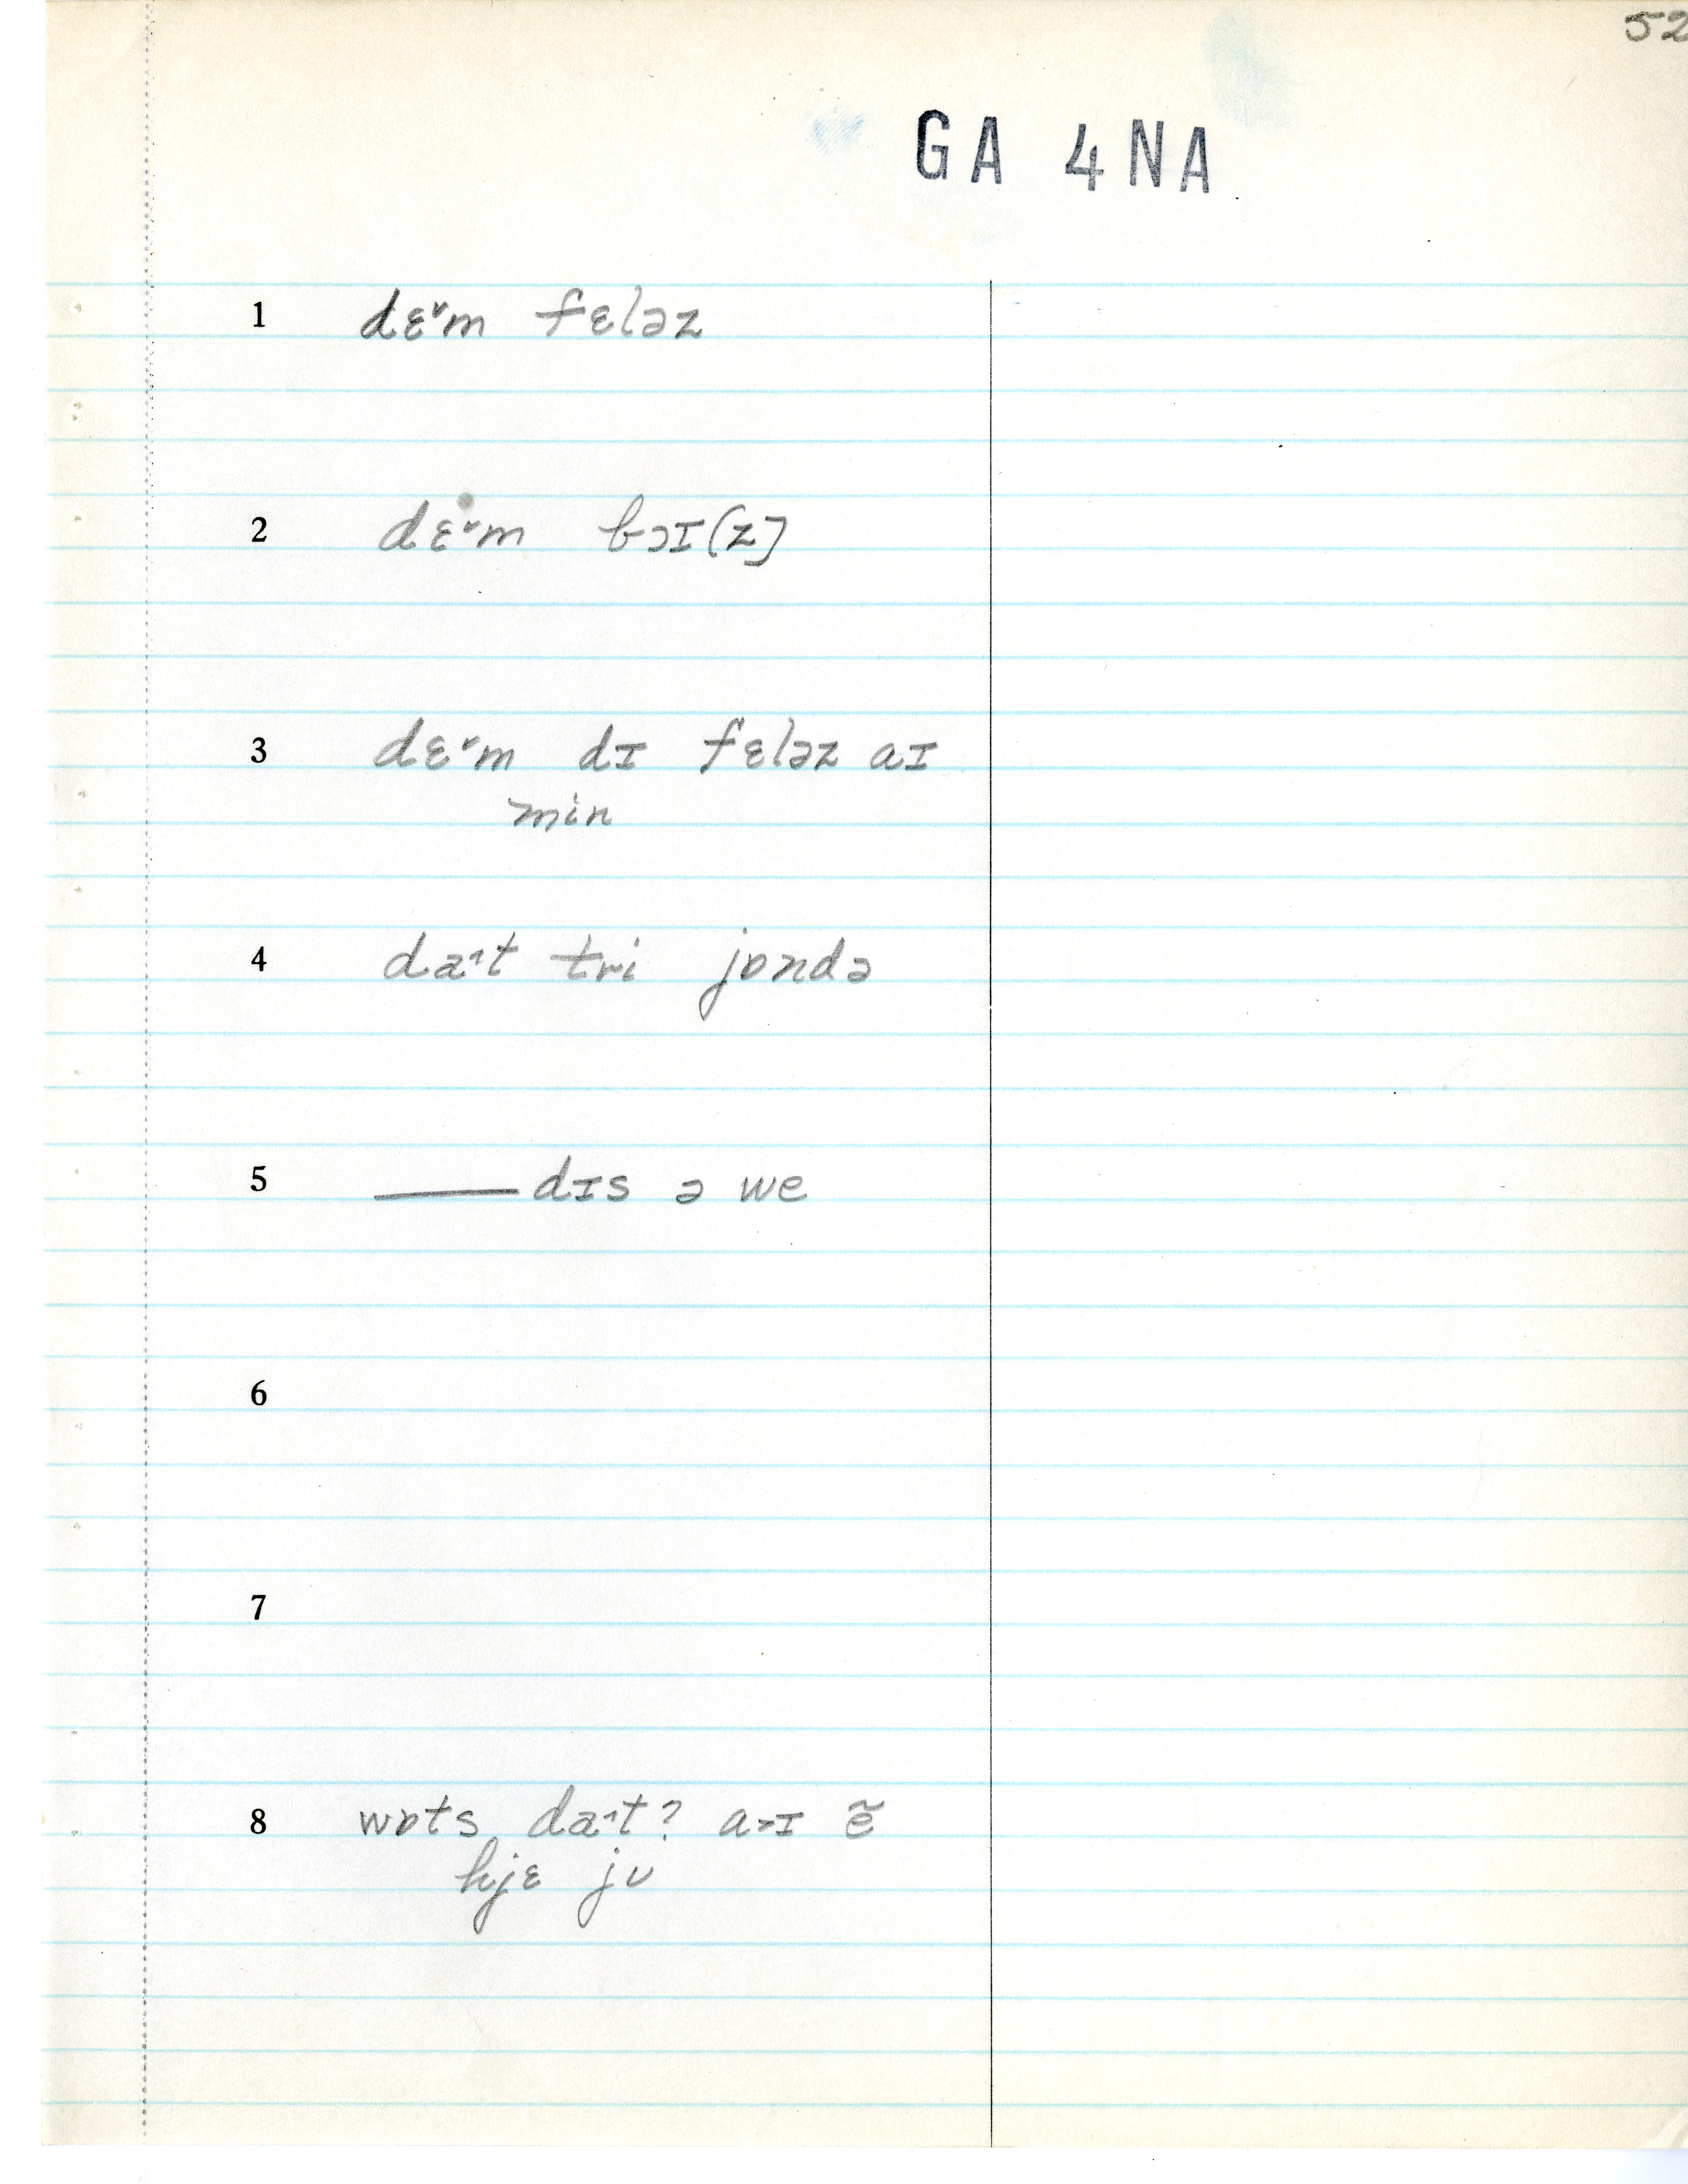 52
GA 4NA
1 dɛ˅m fɛləz
2 dɛ˅m bɔɪ(z)
3 dɛ˅m dɪ fɛləz aɪ
min
4 da˄t tri jɒndə
5 ___dɪs ə we
6
7
8 wɒts da˄t? a˃ɪ ẽ
hjɛ jʊ